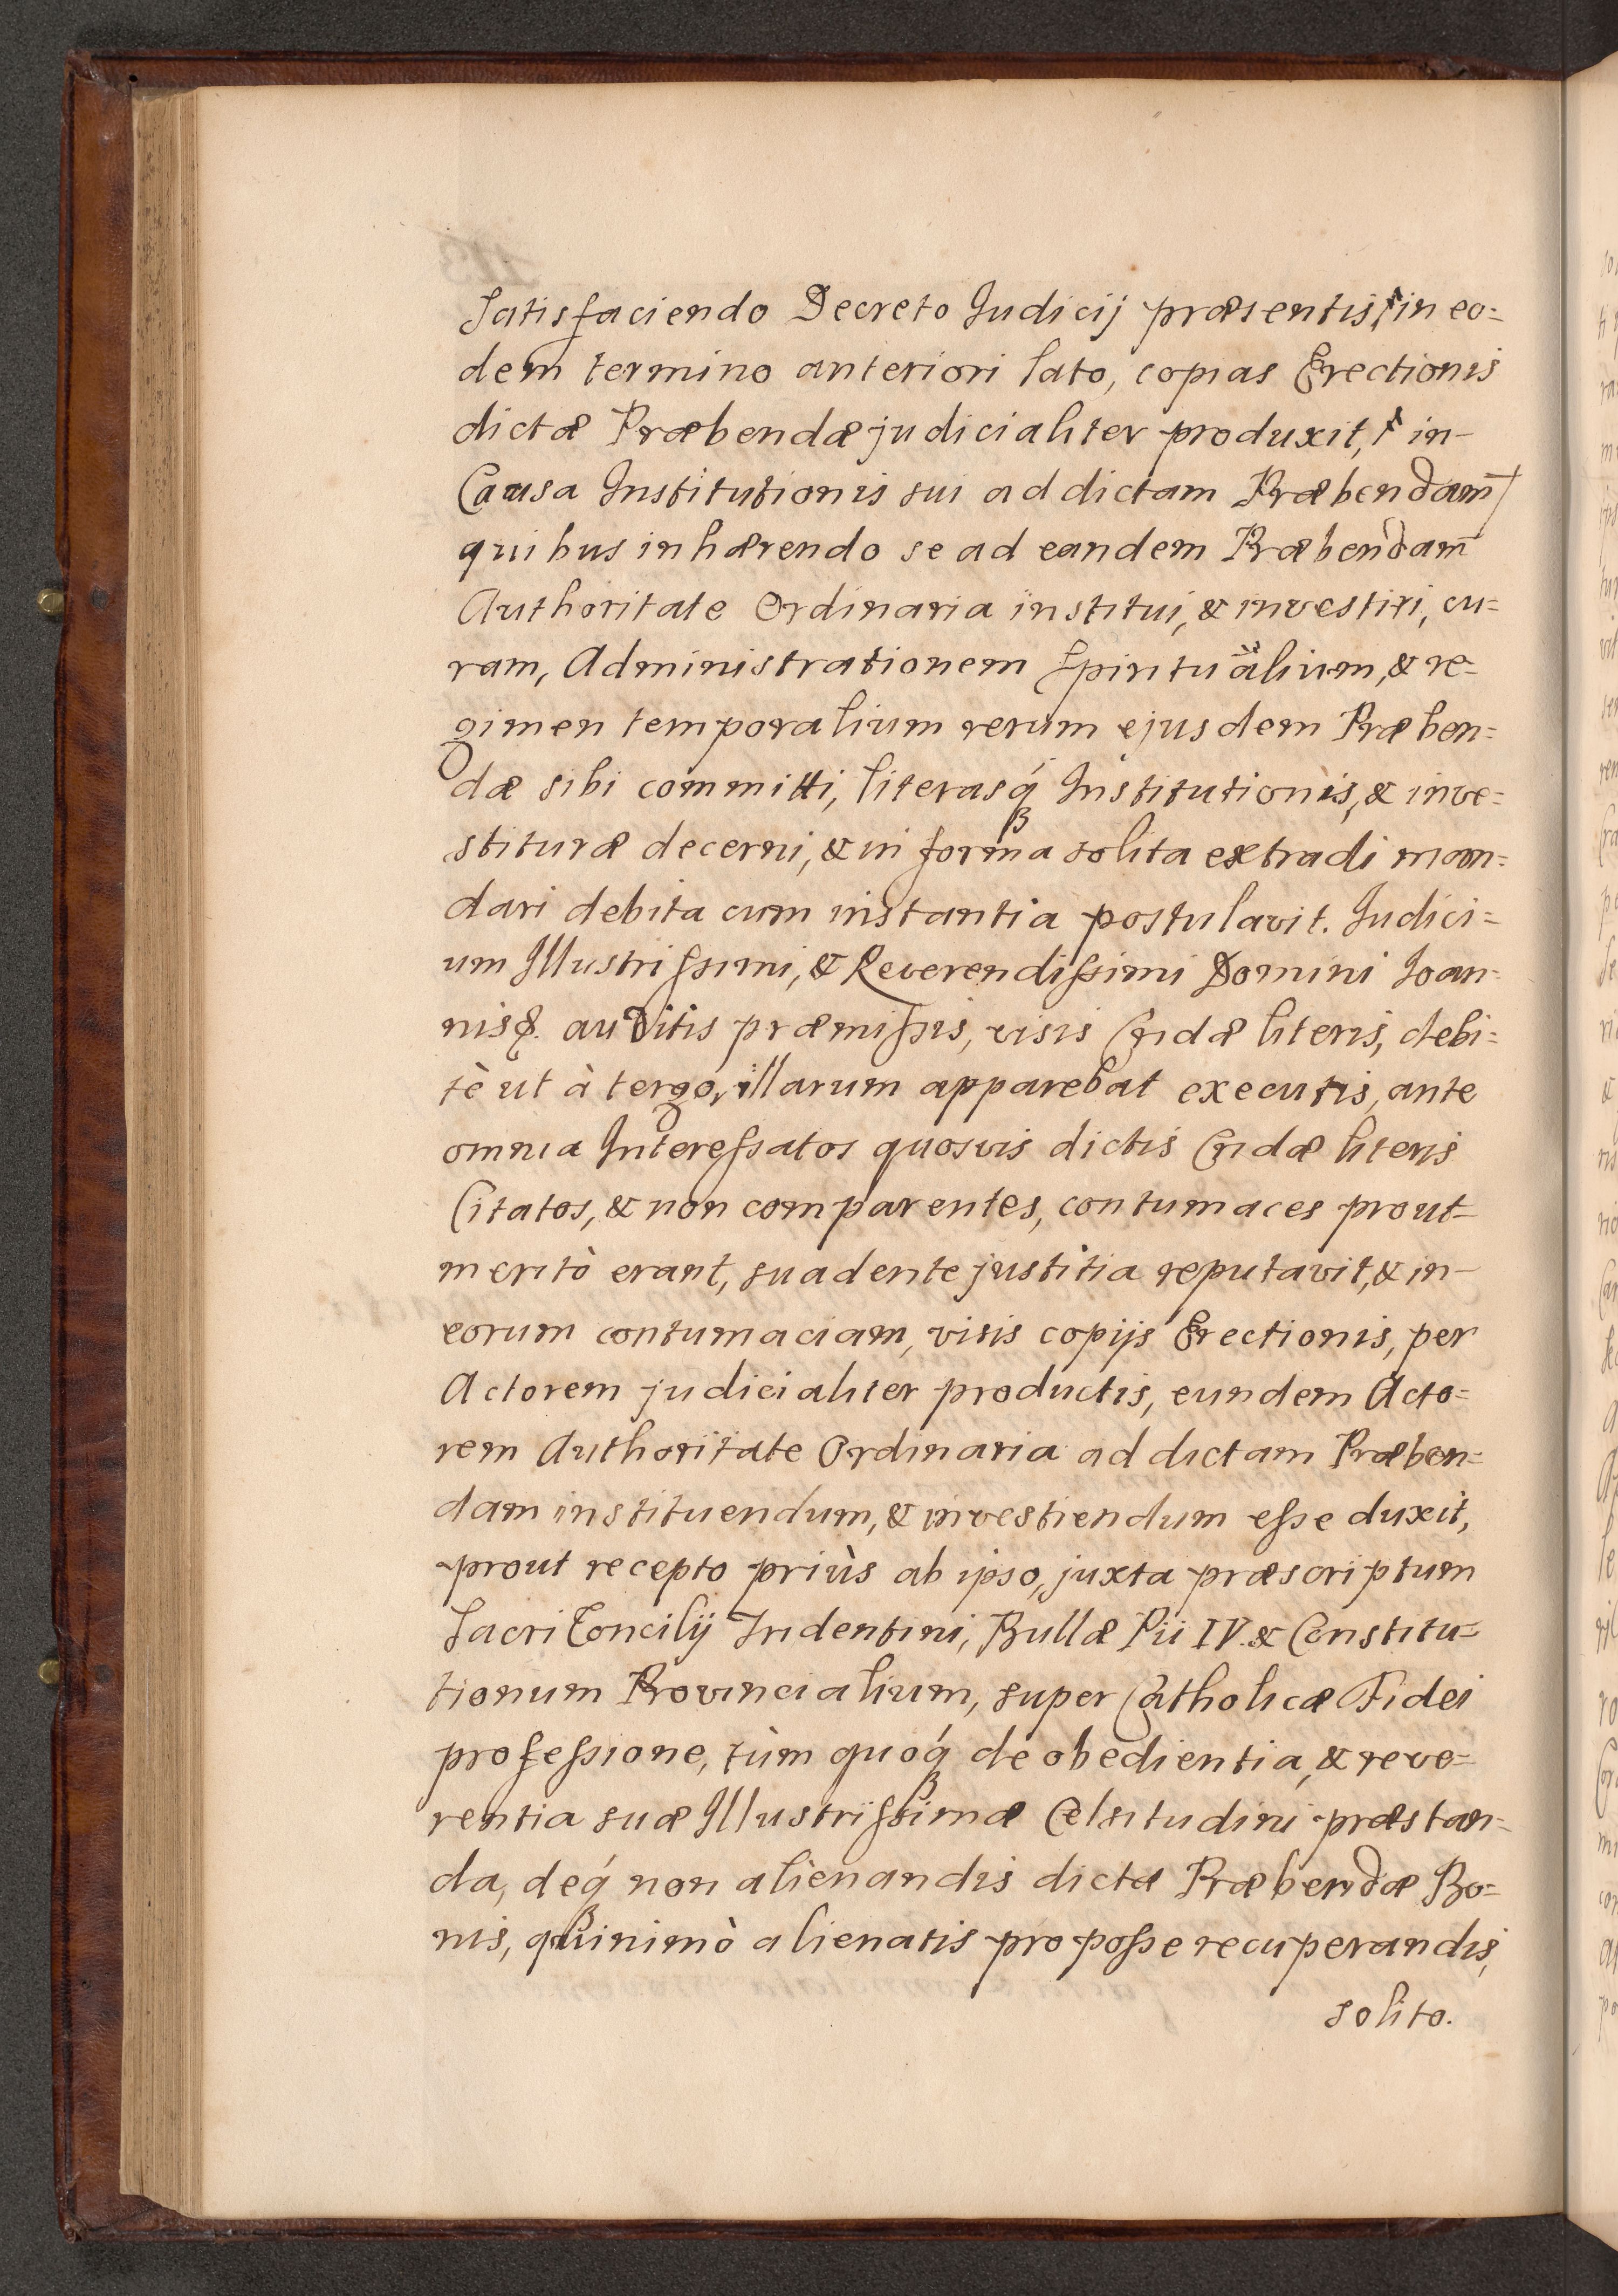 Satisfaciendo Decreto Judicij præsentis, in eo=
dem termino anteriori lato, copias Erectionis
dictæ Præbendæ judicialiter produxit, & in-
Causa Institutionis sui ad dictam Præbendam̄
quibus inhærendo se ad eandem Præbendam̄
Authoritate Ordinaria institui, & investiri, cu=
ram, Administrationem Spiritualium, & re=
gimen temporalium rerum ejusdem Præben=
dæ sibi committi, literasq́ Institutionis, & inve=
stituræ decerni, & in forma solita extradi man=
dari debita cum instantia postulavit. Judici=
um Illustrissimi, & Reverendissimi Domini Joan=
nis &. auditis præmissis, visis Cridæ literis, debi=
tè ut à tergo, illarum apparebat executis, ante
omnia Interessatos quosvis dictis Cridæ literis
Citatos, & non comparentes, contumaces prout-
meritò erant, suadente justitia reputavit, & in-
eorum contumaciam, visis copijs Erectionis, per
Actorem judicialiter productis, eundem Acto=
rem Authoritate Ordinaria ad dictam Præben=
dam instituendum, & investiendum esse duxit,
prout recepto priùs ab ipso, juxta præscriptum
Sacri Concilij Tridentini, Bullæ Pii IV. & Constitu=
tionum Provincialium, super Catholicæ Fidei
professione, tùm quoq́ de obedientia, & reve=
rentia suæ Illustrissimæ Celsitudini præstan=
da, deq́ non alienandis dictæ Præbendæ Bo=
nis, quinimò alienatis pro posse recuperandis,
solito.